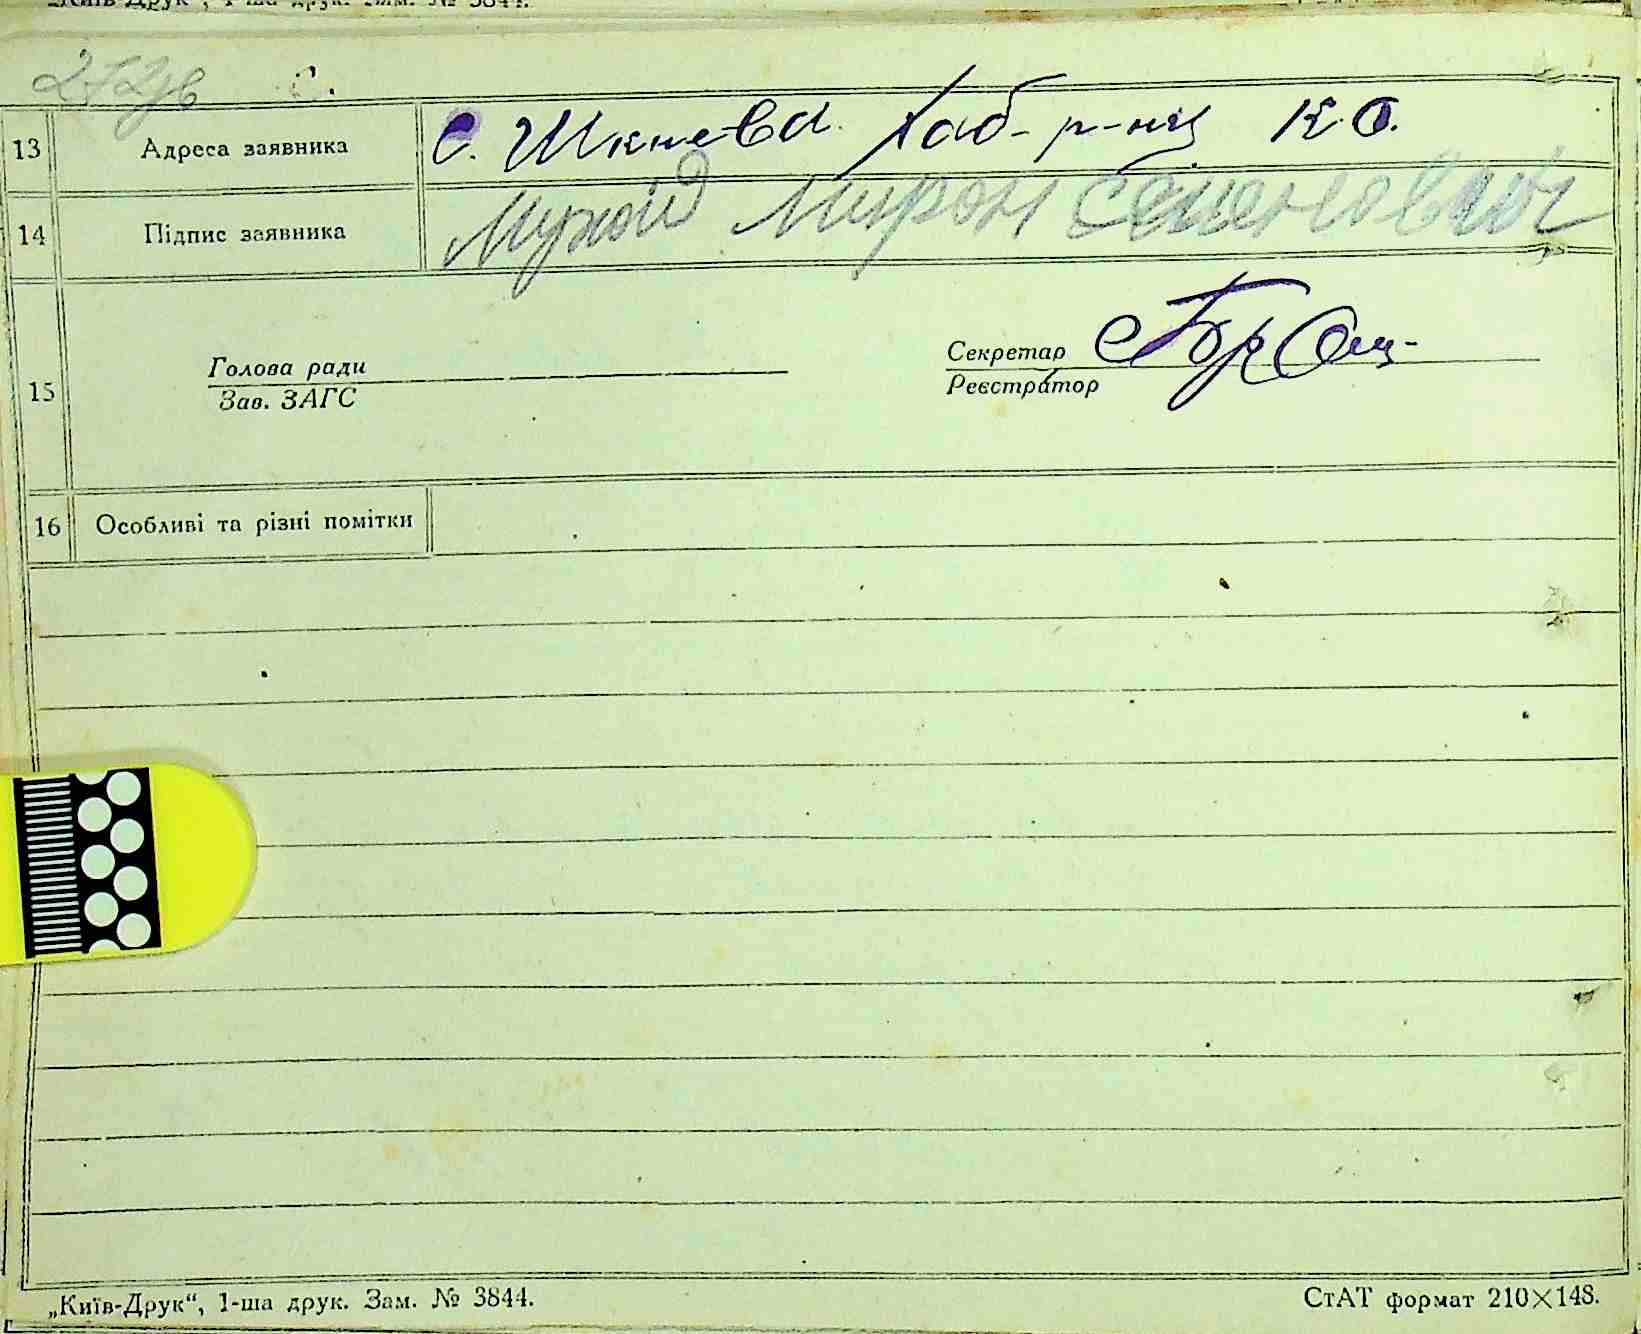 „Київ-Друк“, 1-ша друк. Зам. № 3844.
13 Адреса заявника С. Шкнева Хаб- р-ну К.О.
14 Підпис заявника Мухой Мирон Семенович
15 Голова ради Секретар
Зав. ЗАГС Реєстратор
16 Особливі та різні помітки
„Київ-Друк“, 1-ша друк. Зам. № 3844. СтАТ формат 210×148.